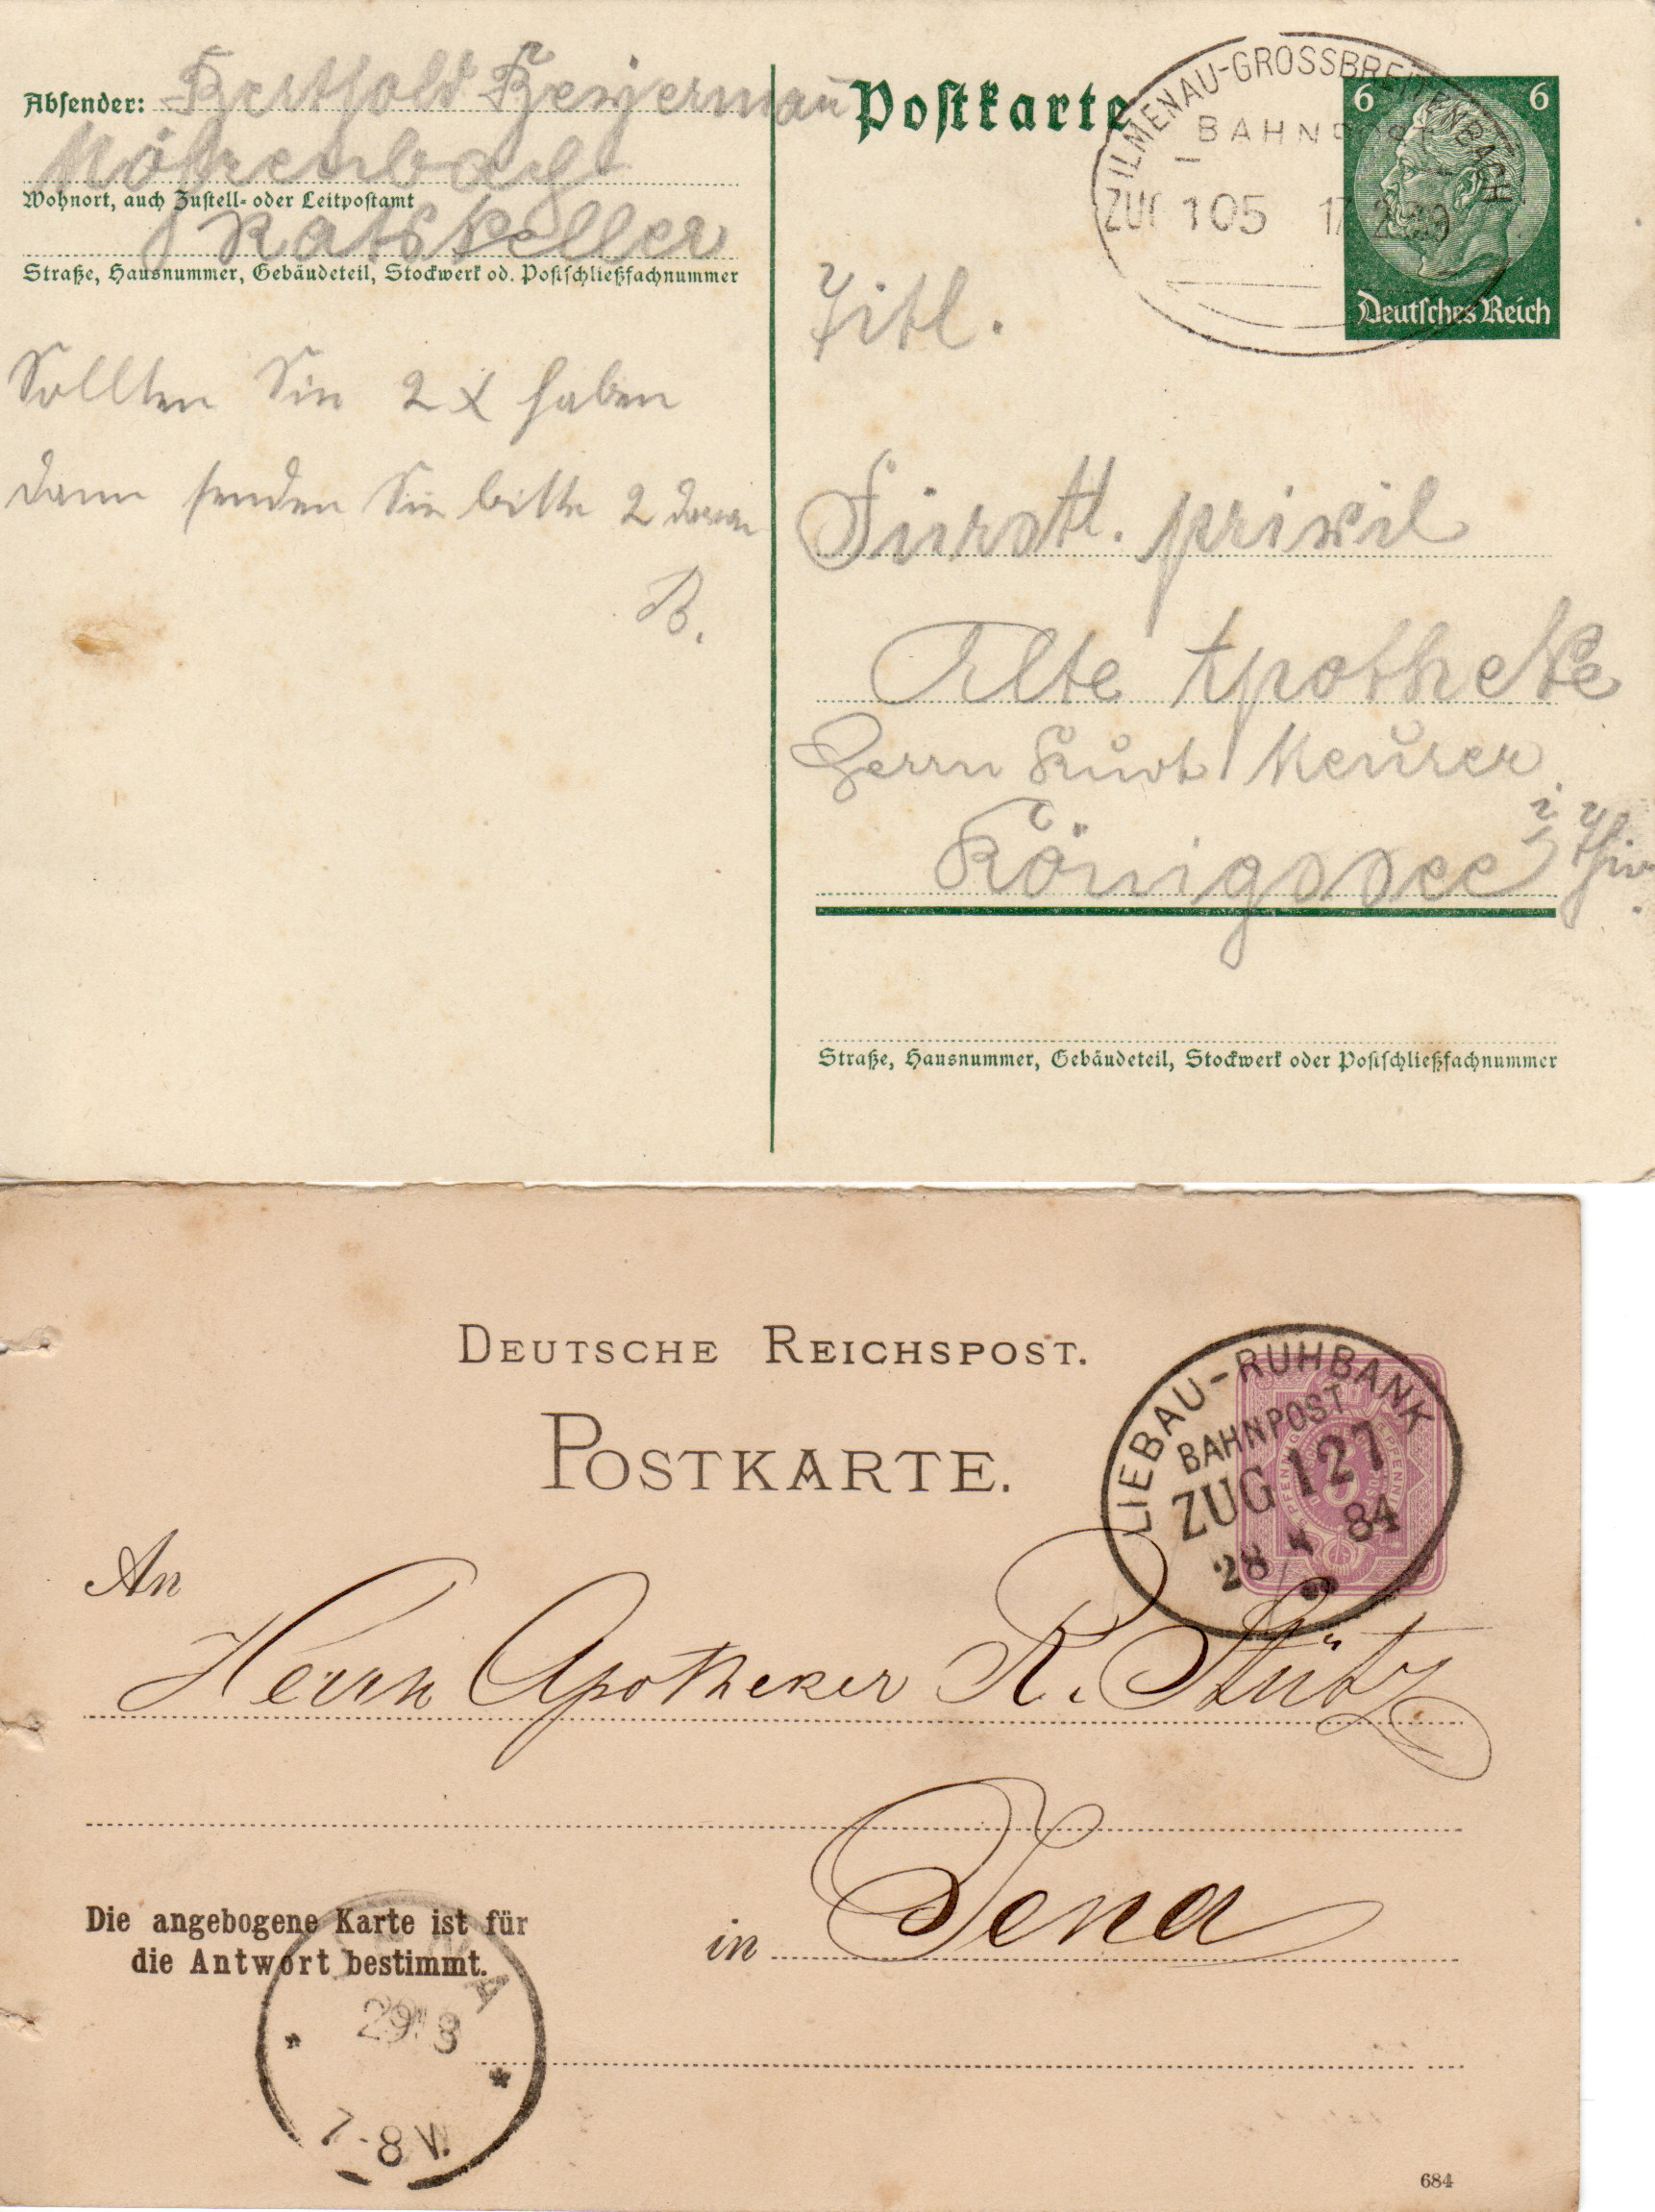 Absender: Berthold Beyermañ
Möhrenbach
Wohnort, auch Zustell- oder Leitpostamt
Ratskeller
Straße, Hausnummer, Gebäudeteil, Stockwerk od. Postschließfachnummer
Sollten Sie 2 X haben
dann senden Sie bitte 2 davon
B.
Postkarte
ILMENAU-GROSSBREITENBACH
BAHNPOST
ZUG 105 17 2 39
6 6
Deutsches Reich
Titl.
Fürstl. privil
Alte Apotheke
Herrn Kurt Meurer
Königssee i. Thür.
Straße, Hausnummer, Gebäudeteil, Stockwerk oder Postschließfachnummer
DEUTSCHE REICHSPOST.
POSTKARTE.
LIEBAU-RUHBANK
BAHNPOST
ZUG 127
28 84
An
Herrn Apotheker R. Stütz
in Jena
Die angebogene Karte ist für
die Antwort bestimmt.
29 8
7-8 V.
684